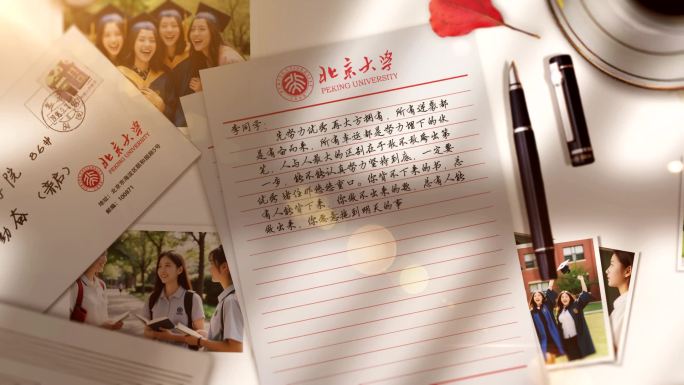 北京大学
PEKING UNIVERSITY
李同学:
先努力优秀,再大方拥有,所有逆袭都
是有备而来,所有幸运都是努力埋下的伏
笔,人与人最大的区别在于敢不敢踏出第
一步,能不能认真努力坚持到底,一定要
优秀 堵住那悠悠
你背不下来的书,总
有人能背下来,你做不出来的题,总有人能
做出来,你愿意拖到明天的事
北京大学
PEKING UNIVERSITY
地址:北京市海淀区颐和园路5号
邮编:100871
学院 86#
(亲启)